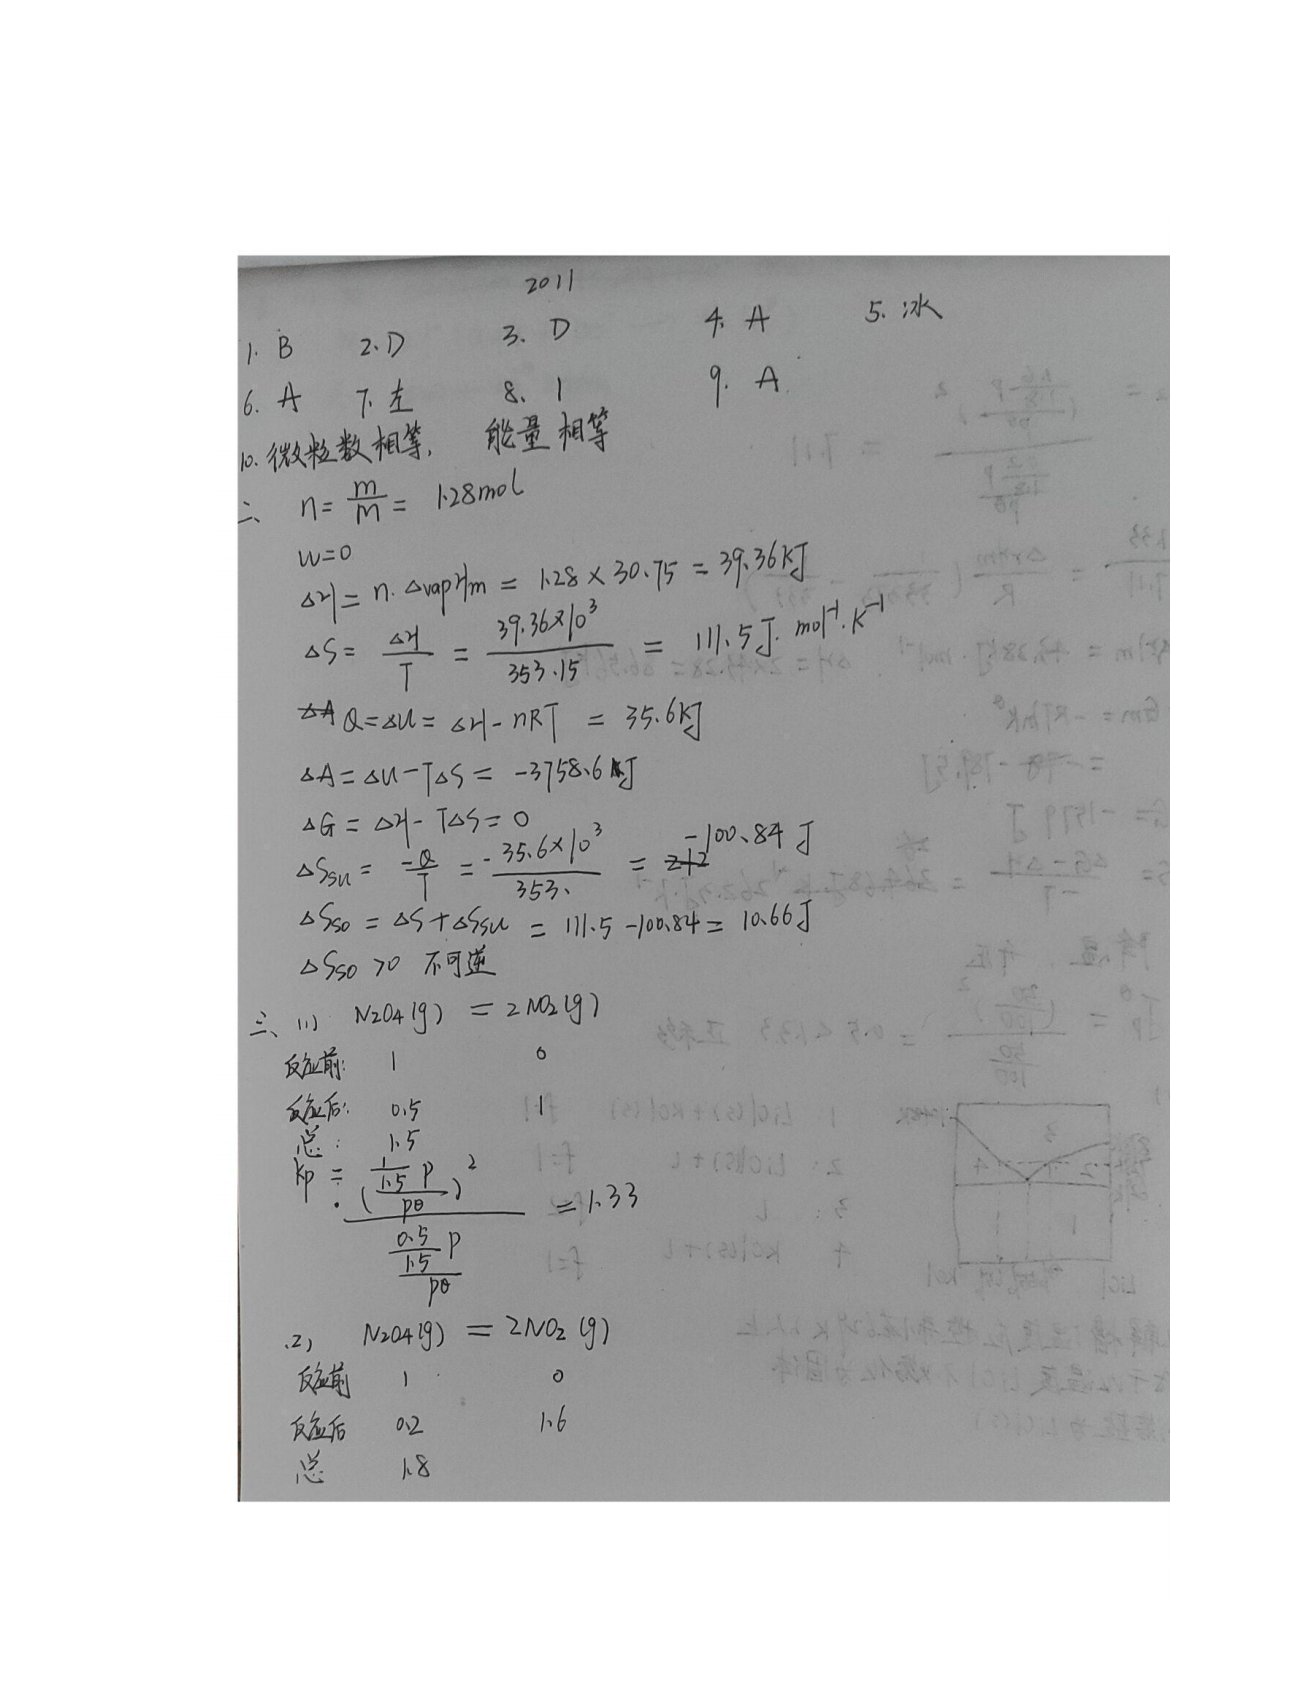 2011
1. B 2. D 3. D 4. A 5. 冰
6. A 7. 左 8. 1 9. A
10. 微粒数相等, 能量相等
二、 n = m/M = 1.28mol
W=0
ΔH = n·ΔvapHm = 1.28 × 30.75 = 39.36KJ
ΔS = ΔH/T = 39.36×10³/353.15 = 111.5J·mol⁻¹·K⁻¹
Q = ΔU = ΔH - nRT = 35.6KJ
ΔA = ΔU - TΔS = -3758.6 J
ΔG = ΔH - TΔS = 0
ΔSsu = -Q/T = -35.6×10³/353. = -100.84 J
ΔSso = ΔS + ΔSsu = 111.5 - 100.84 = 10.66J
ΔSso >0 不可逆
三、 (1) N2O4(g) = 2NO2(g)
反应前: 1 0
反应后: 0.5 1
总: 1.5
Kp = (1/1.5 P / pθ)² / (0.5/1.5 P / pθ) = 1.33
(2) N2O4(g) = 2NO2(g)
反应前 1 0
反应后 0.2 1.6
总 1.8